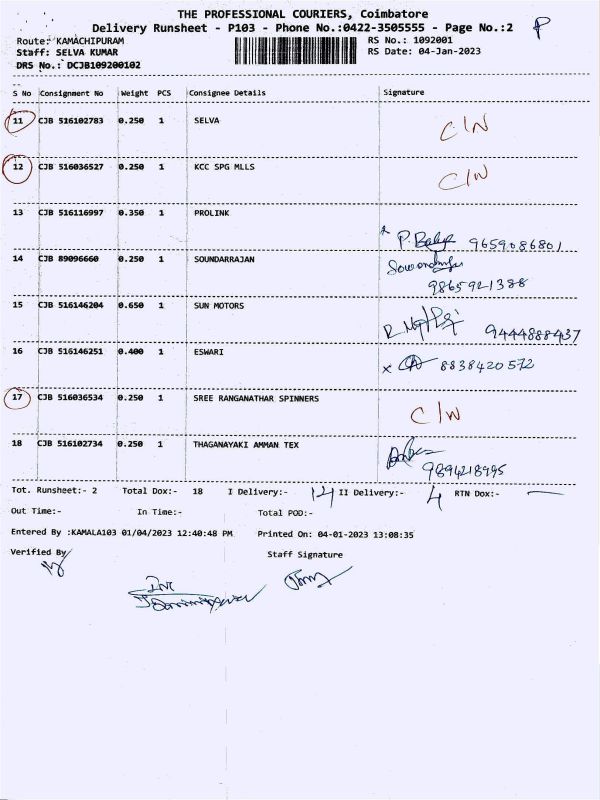 THE PROFESSIONAL COURIERS, Coimbatore
Delivery Runsheet - P103 - Phone No.:0422-3505555 - Page No.:2 P
Route: KAMACHIPURAM RS No.: 1092001
Staff: SELVA KUMAR RS Date: 04-Jan-2023
DRS No.: DCJB109200102
S No Consignment No Weight PCS Consignee Details Signature
11 CJB 516102783 0.250 1 SELVA C/N
12 CJB 516036527 0.250 1 KCC SPG MLLS C/N
13 CJB 516116997 0.350 1 PROLINK
9659086801
14 CJB 89096660 0.250 1 SOUNDARRAJAN
9865921388
15 CJB 516146204 0.650 1 SUN MOTORS
9444888437
16 CJB 516146251 0.400 1 ESWARI x 8838420572
17 CJB 516036534 0.250 1 SREE RANGANATHAR SPINNERS C/N
18 CJB 516102734 0.250 1 THAGANAYAKI AMMAN TEX
9894218995
Tot. Runsheet:- 2 Total Dox:- 18 I Delivery:- 14 II Delivery:- 4 RTN Dox:- —
Out Time:- In Time:- Total POD:-
Entered By :KAMALA103 01/04/2023 12:40:48 PM Printed On: 04-01-2023 13:08:35
Verified By Staff Signature